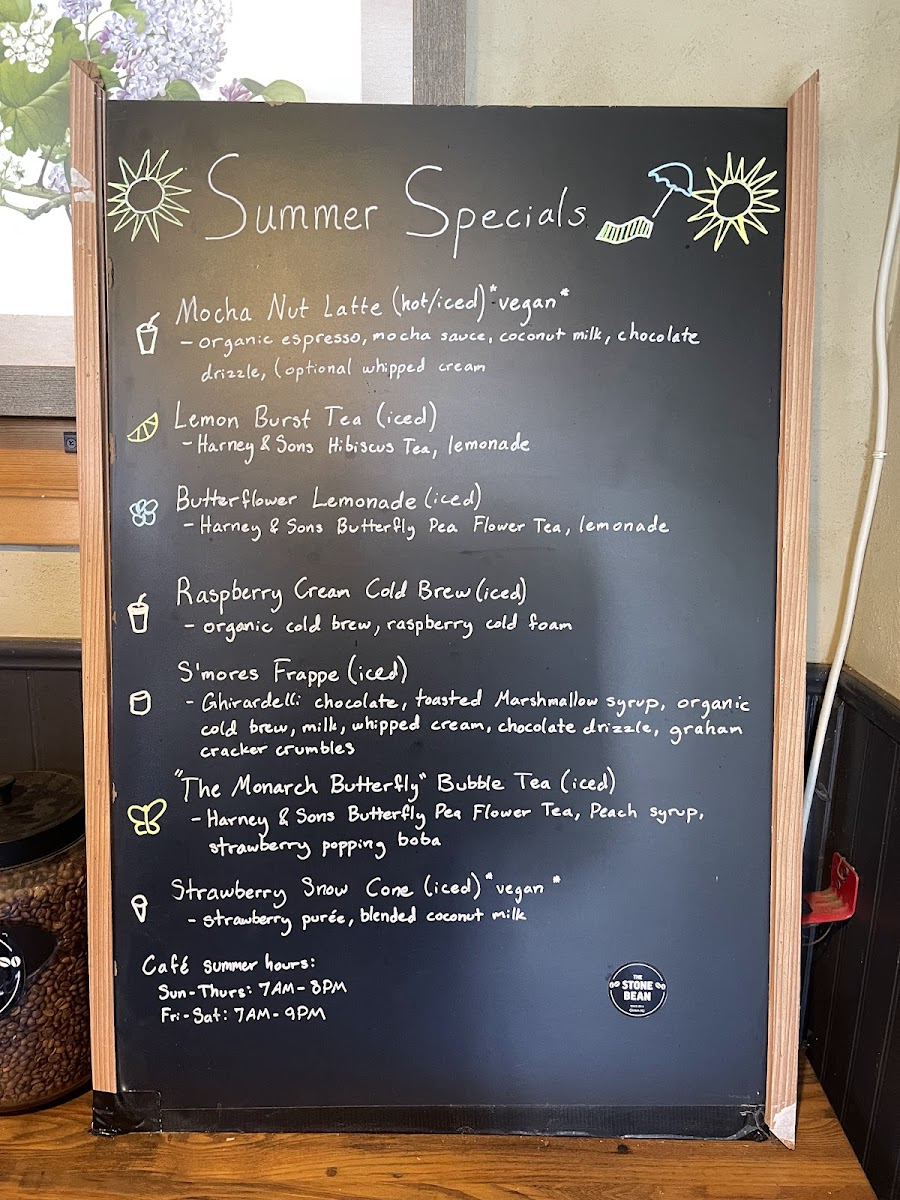 Summer Specials
Mocha Nut Latte (hot/iced) *vegan*
- organic espresso, mocha sauce, coconut milk, chocolate
drizzle, (optional whipped cream
Lemon Burst Tea (iced)
- Harney & Sons Hibiscus Tea, lemonade
Butterflower Lemonade (iced)
- Harney & Sons Butterfly Pea Flower Tea, lemonade
Raspberry Cream Cold Brew (iced)
- organic cold brew, raspberry cold foam
S'mores Frappe (iced)
- Ghirardelli chocolate, toasted Marshmallow syrup, organic
cold brew, milk, whipped cream, chocolate drizzle, graham
cracker crumbles
"The Monarch Butterfly" Bubble Tea (iced)
- Harney & Sons Butterfly Pea Flower Tea, Peach syrup,
strawberry popping boba
Strawberry Snow Cone (iced) *vegan*
- strawberry purée, blended coconut milk
Café summer hours:
Sun-Thurs: 7AM-8PM
Fri-Sat: 7AM-9PM
THE
STONE
BEAN